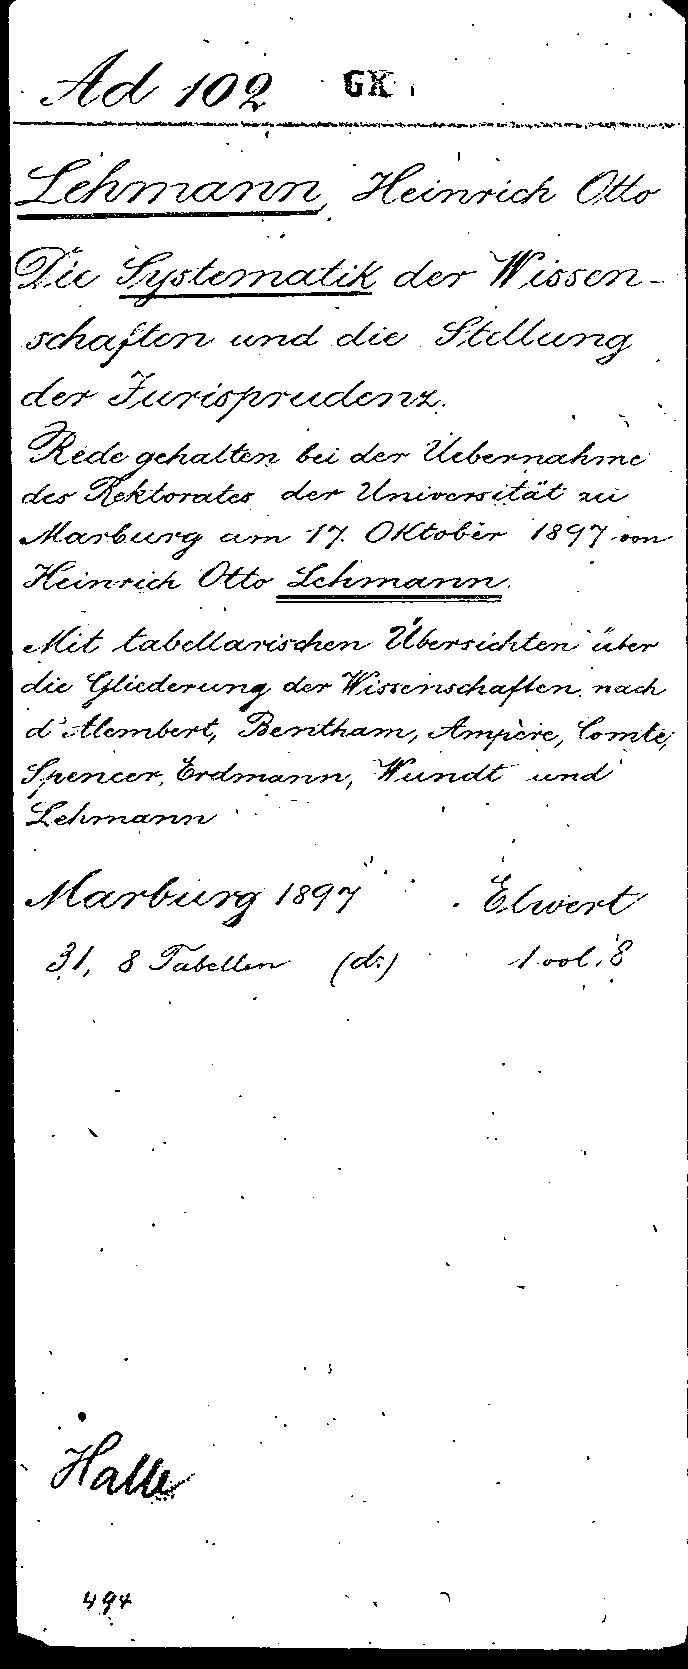 Ad 102 GK
Lehmann, Heinrich Otto
Die Systematik der Wissen-
schaften und die Stellung
der Jurisprudenz.
Rede gehalten bei der Uebernahme
des Rektorates der Universität zu
Marburg am 17. Oktober 1897 von
Heinrich Otto Lehmann.
Mit tabellarischen Übersichten über
die Gliederung der Wissenschaften nach
d'Alembert, Bentham, Ampère, Comte,
Spencer, Erdmann, Wundt und
Lehmann
Marburg 1897 Elwert
31, 8 Tabellen (d.) 1 vol. 8
Halle
494